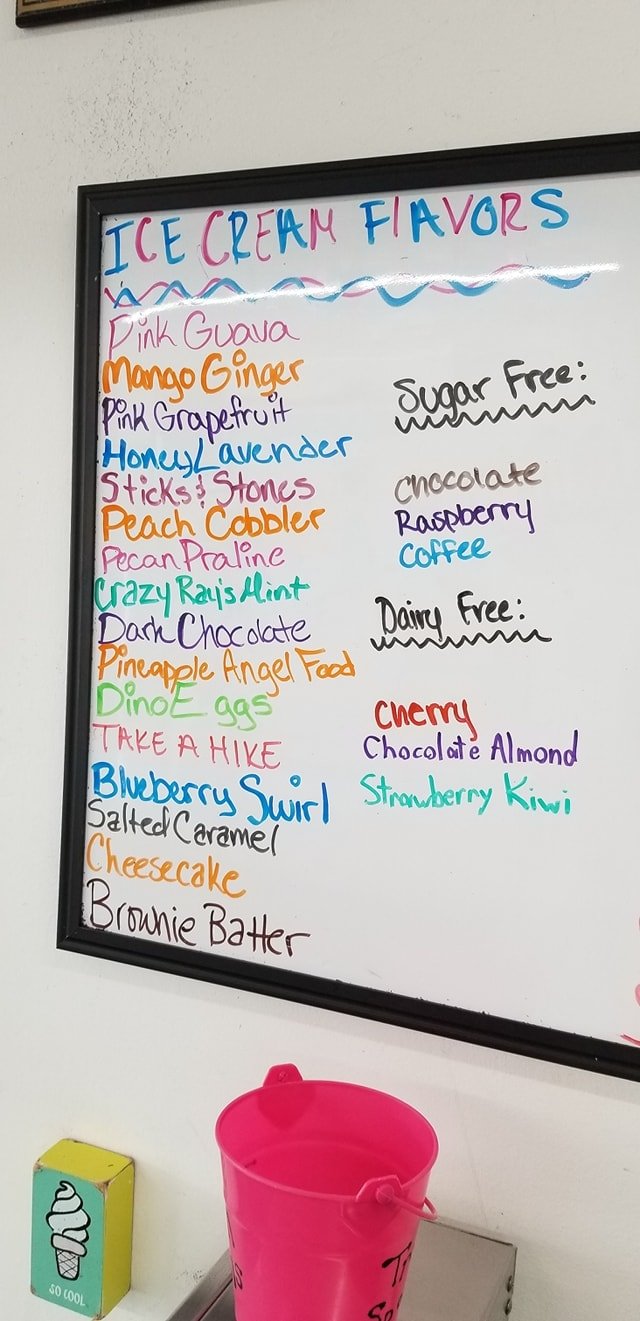 ICE CREAM FLAVORS
Pink Guava
Mango Ginger
Pink Grapefruit
Honey Lavender
Sticks & Stones
Peach Cobbler
Pecan Praline
Crazy Ray's Mint
Dark Chocolate
Pineapple Angel Food
Dino Eggs
TAKE A HIKE
Blueberry Swirl
Salted Caramel
Cheesecake
Brownie Batter
Sugar Free:
Chocolate
Raspberry
Coffee
Dairy Free:
Cherry
Chocolate Almond
Strawberry Kiwi
SO COOL